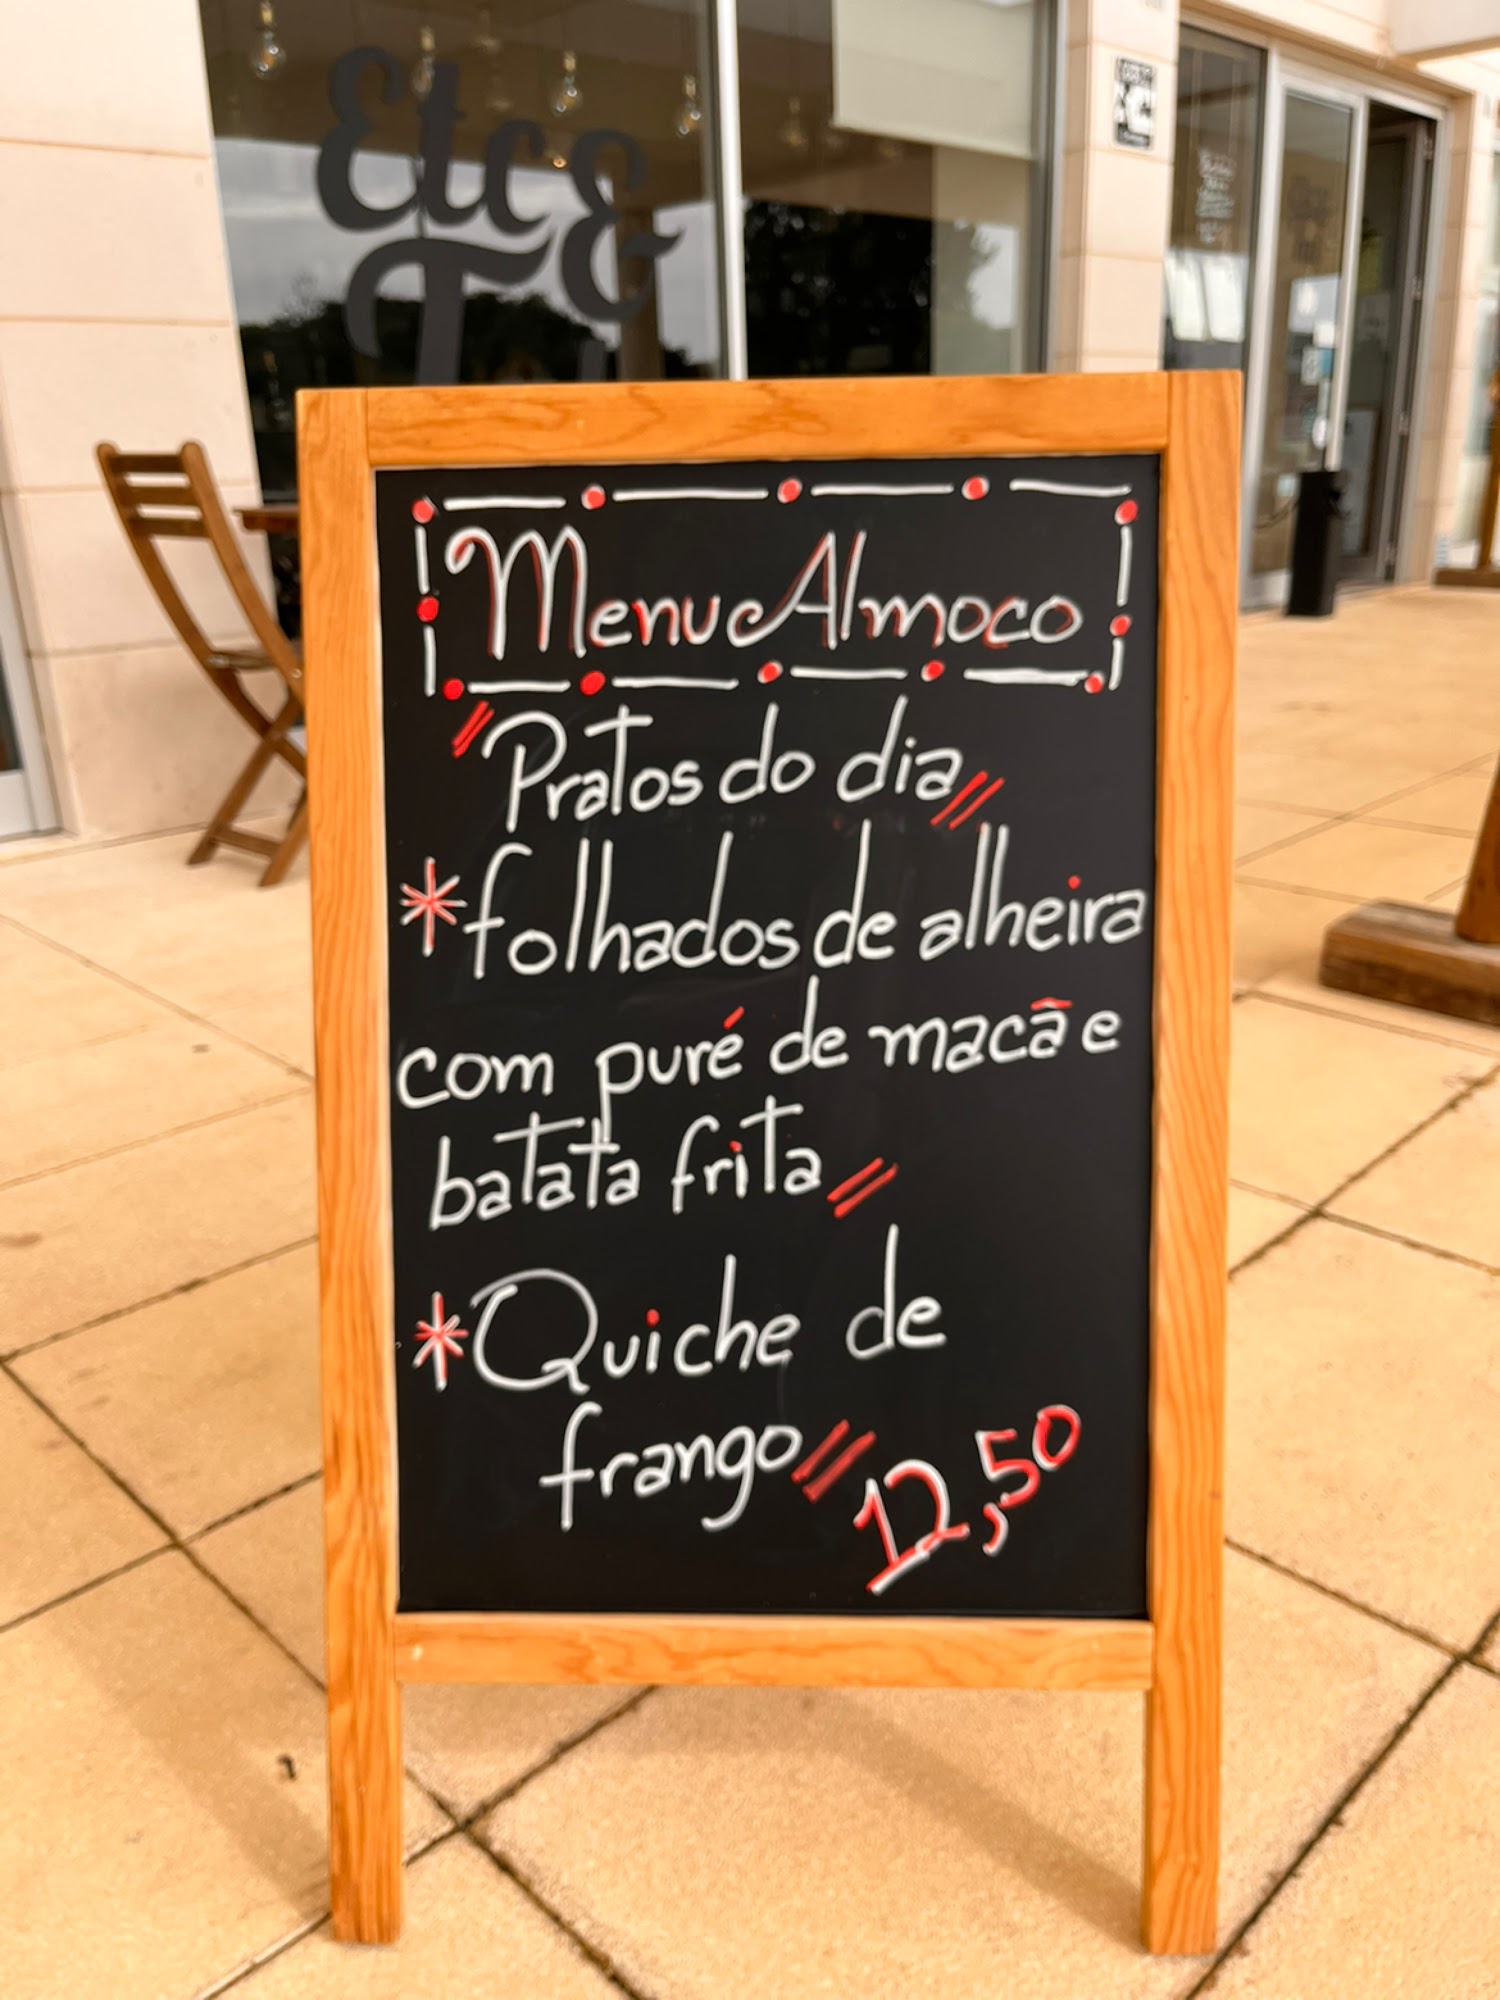 Etc &
Menu Almoco
"Pratos do dia"
*folhados de alheira
com puré de macã e
batata frita //
*Quiche de
frango // 12,50